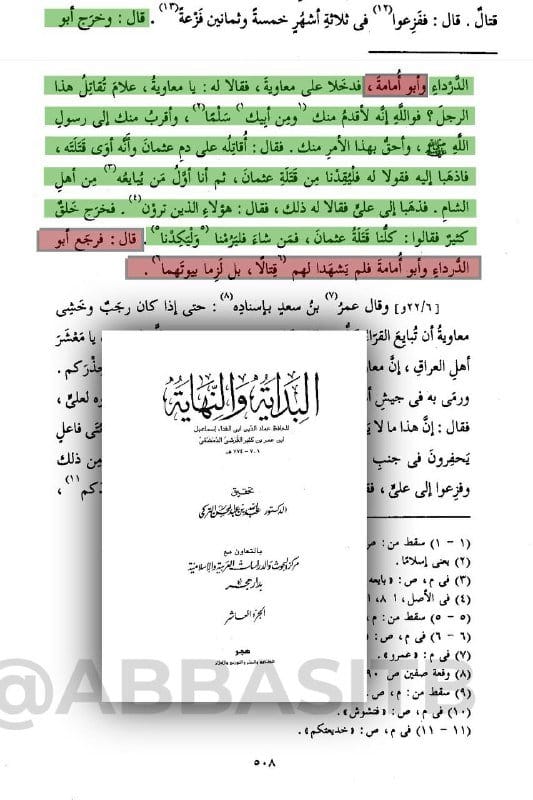 قتالٌ . قال : ففَزِعوا(١٢) فى ثلاثةِ أشهُرٍ خمسةً وثمانين فَزْعةً(١٣) . قال : وخرَج أبو
الدَّرْداءِ وأبو أُمامةَ ، فدخَلا على معاويةَ ، فقالا له : يا معاويةُ ، علامَ تُقاتِلُ هذا
الرجلَ ؟ فواللَّهِ إنَّه لأقدمُ منك (١ومِن أبيك١) سَلْمًا(٢) ، وأقربُ منك إلى رسولِ
اللَّهِ ﷺ ، وأحقُّ بهذا الأمرِ منك . فقال : أُقاتِلُه على دمِ عثمانَ وأنَّه آوَى قتَلتَه ،
فاذهَبا إليه فقولا له فلْيُقِدْنا مِن قتَلةِ عثمانَ ، ثم أنا أولُ مَن يُبايعُه(٣) مِن أهلِ
الشامِ . فذهَبا إلى علىٍّ فقالا له ذلك ، فقال : هؤلاءِ الذين ترَوْن(٤) . فخرَج خلقٌ
كثيرٌ فقالوا : كلُّنا قتَلةُ عثمانَ ، فمَن شاءَ فليَرُمْنا (٥ولْيَكِدْنا٥) . قال : فرجَع أبو
الدرداءِ وأبو أُمامةَ فلم يَشهَدا لهم (٦قِتالًا ، بل لَزِما بيوتَهما٦) .
[٢٢/٦و] وقال عمرُ(٧) بنُ سعدٍ بإسنادِه(٨) : حتى إذا كان رجَبٌ وخَشِى
معاويةُ أن تُبايعَ القرّا
يا مَعْشَرَ
أهلِ العراقِ ، إنَّ معا
حِذْرَكم .
ورمَى به فى جيشِ أ
ره لعلىٍّ ،
فقال : إنَّ هذا ما لا ي
فاعلٍ
يَحفِرون فى جنبِ
مِن ذلك
وفزِعوا إلى علىٍّ ، فق
دكم(١١) ،
البداية والنهاية
للحافظ عماد الدين أبى الفداء إسماعيل
ابن عمر بن كثير القرشى الدمشقى
٧٠١ - ٧٧٤ هـ
تحقيق
الدكتور عبد الله بن عبد المحسن التركى
بالتعاون مع
مركز البحوث والدراسات العربية والإسلامية
بدار هجر
الجزء العاشر
هجر
للطباعة والنشر والتوزيع والإعلان
(١ - ١) سقط من : ص
(٢) يعنى إسلامًا .
(٣) فى م ، ص : « بايعه
(٤) فى الأصل ، ا ٨ ، ا
(٥ - ٥) سقط من : م ،
(٦ - ٦) فى م ، ص :
(٧) فى م : « عمرو » .
(٨) وقعة صفين ص ٩٠
(٩) سقط من : م ، ص .
(١٠) فى م ، ص : « فتشوش » .
(١١ - ١١) فى م ، ص : « خديعتكم » .
@ABBASITB
٥٠٨